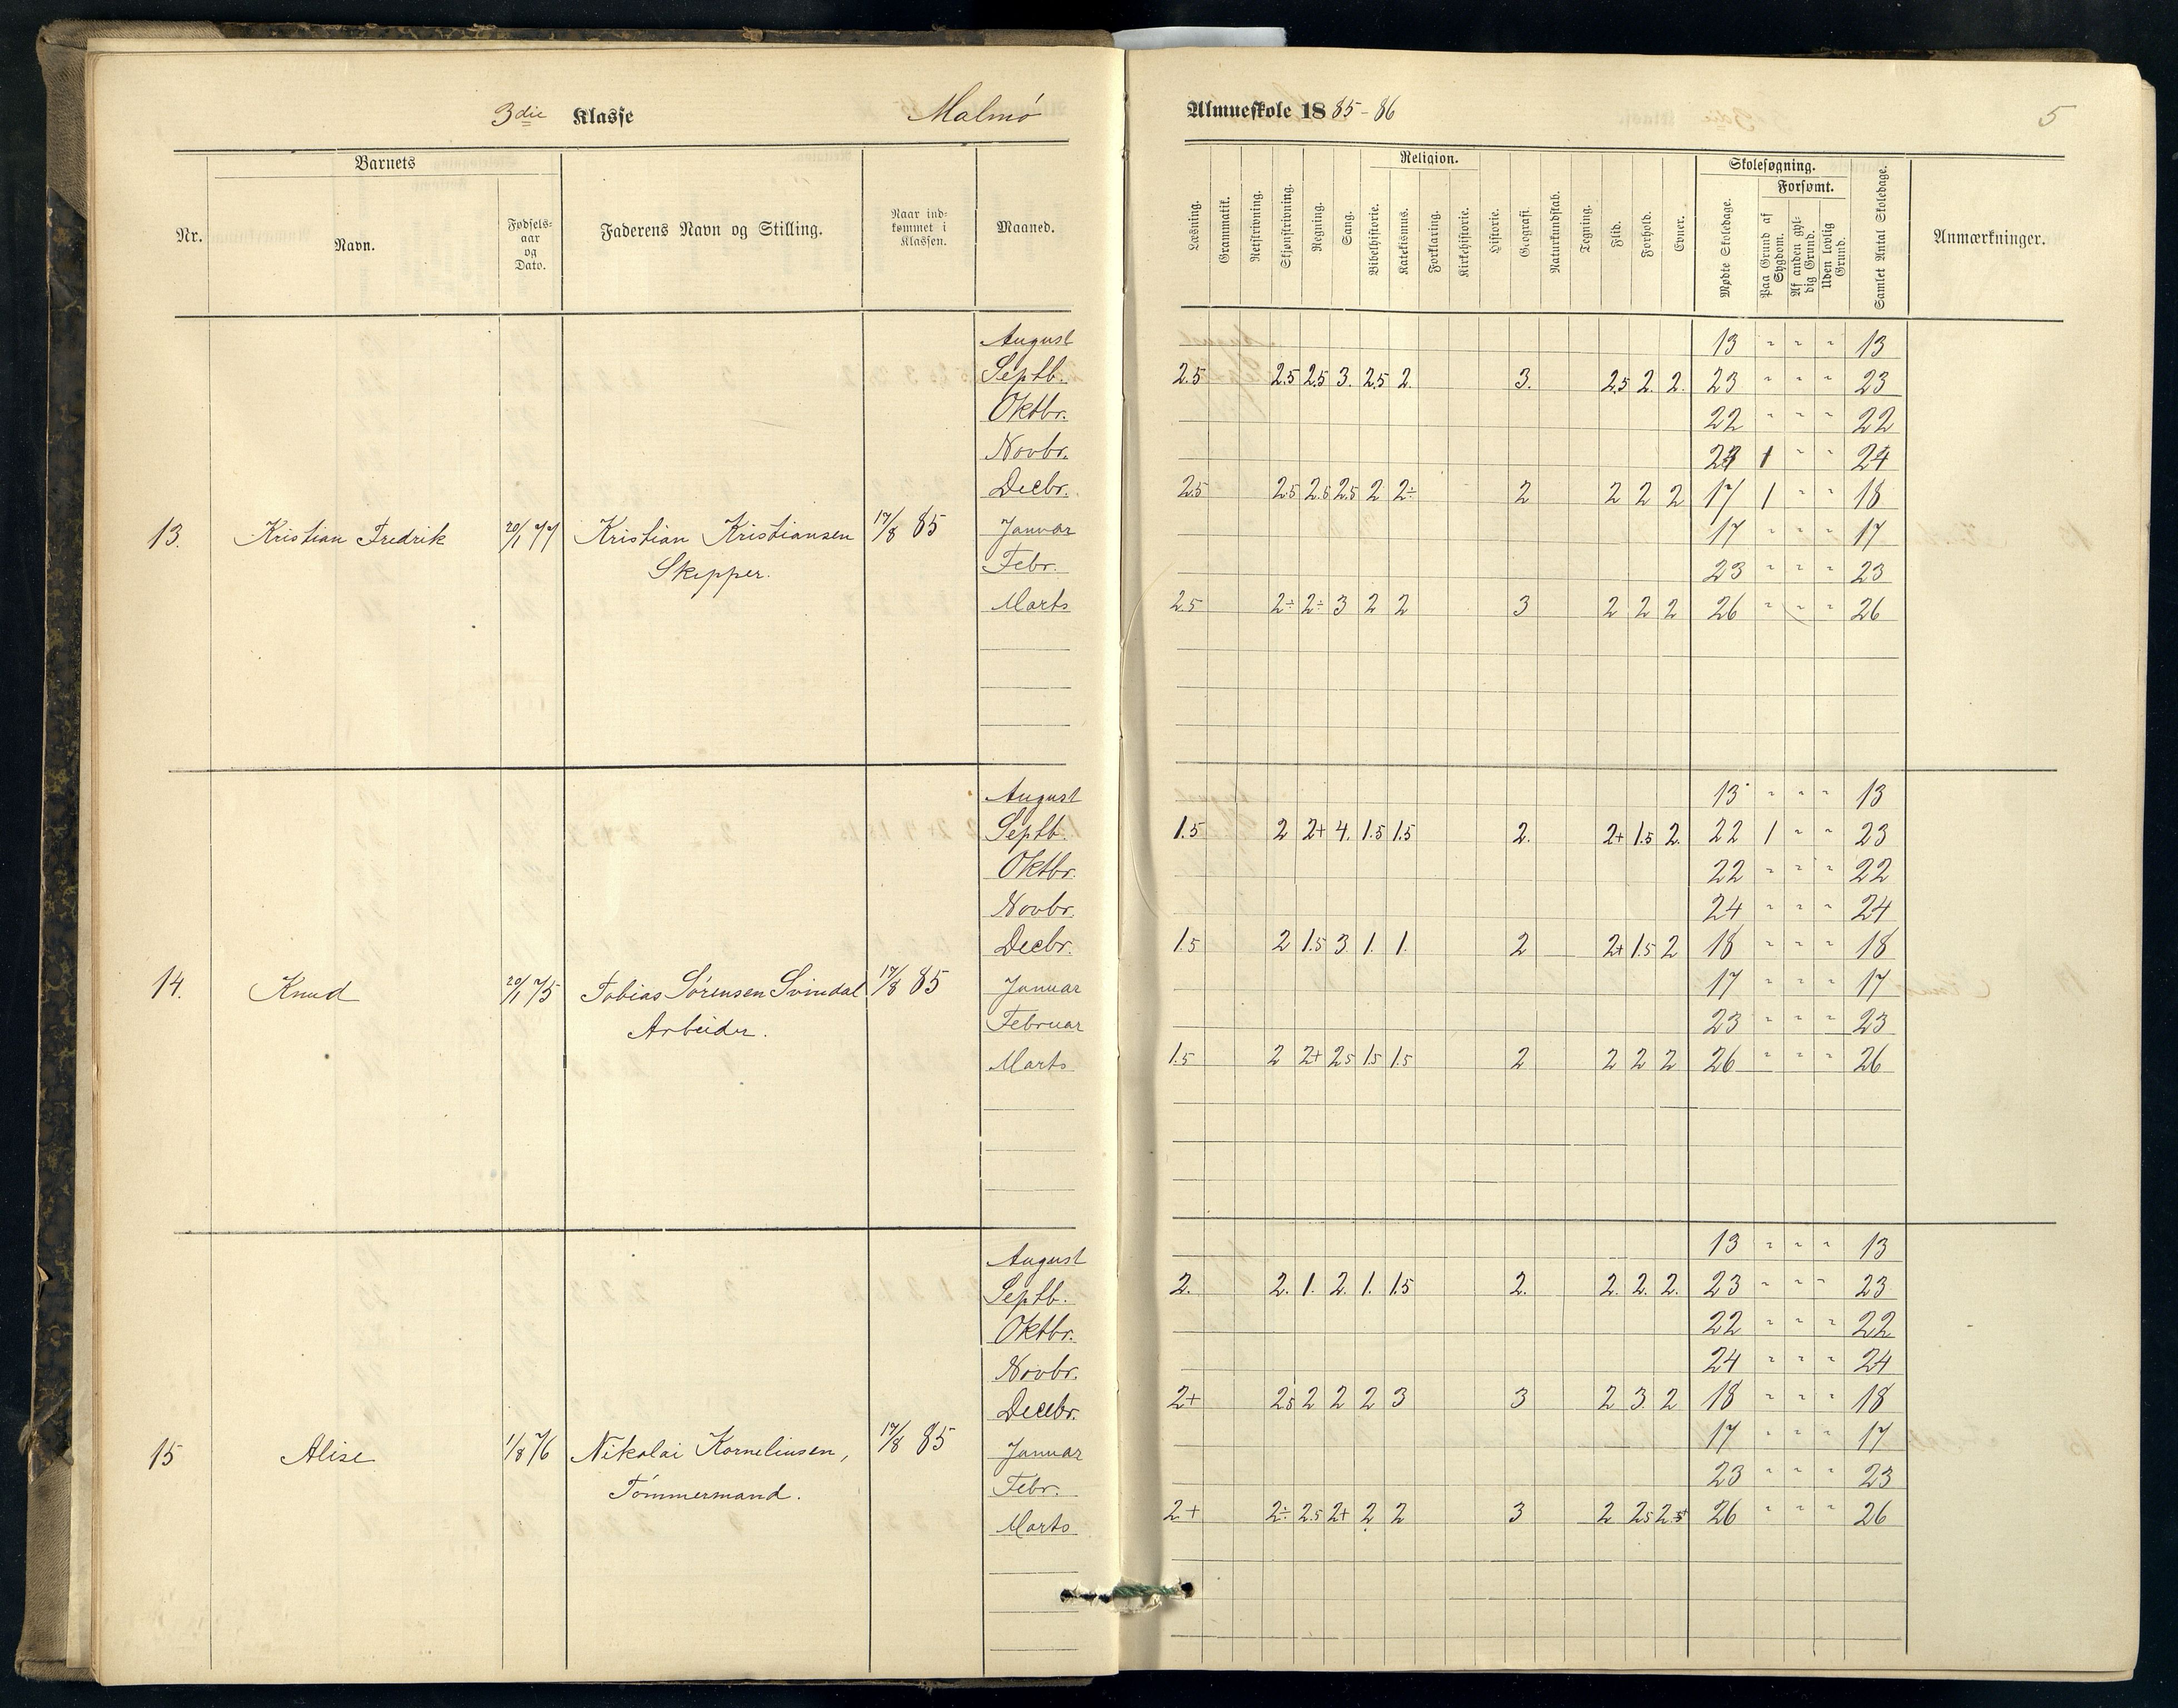 3die Klasse Malmö Almueskole 1885-86 5
Barnets
Nr. Navn. Fødselsaar og Dato. Faderens Navn og Stilling. Naar indkommet i Klassen. Maaned.
Læsning. Grammatik. Retskrivning. Skjønskrivning. Regning. Sang. Religion. Bibelhistorie. Katekismus. Forklaring. Kirkehistorie. Historie. Geografi. Naturkundskab. Tegning. Flid. Forhold. Evner. Skolesøgning. Mødte Skoledage. Forsømt. Paa Grund af Sygdom. Af anden gyldig Grund. Uden lovlig Grund. Samlet Antal Skoledage. Anmærkninger.
August 13 " " " 13
Septb. 2.5 2.5 2.5 3. 2.5 2. 3. 2.5 2. 2. 23 " " " 23
Oktbr. 22 " " " 22
Novbr. 1 " " 24
Decbr. 2.5 2.5 2.5 2.5 2 2÷ 2 2 2 2 17 1 " " 18
13. Kristian Fredrik 20/1 77 Kristian Kristiansen 17/8 85 Januar 17 " " " 17
Skipper. Febr. 23 " " " 23
Marts 2.5 2÷ 2÷ 3 2 2 3 2 2 2 26 " " " 26
August 13 " " " 13
Septb. 1.5 2 2+ 4. 1.5 1.5 2. 2+ 1.5 2. 22 1 " " 23
Oktbr. 22 " " " 22
Novbr. 24 " " " 24
Decbr. 1.5 2 1.5 3. 1. 1. 2 2+ 1.5 2 18 " " " 18
14. Knud 20/1 75 Tobias Sörensen Svindal 17/8 85 Januar 17 " " " 17
Arbeider. Februar 23 " " " 23
Marts 1.5 2 2+ 2.5 1.5 1.5 2 2 2 2 26 " " " 26
August 13 " " " 13
Septb. 2. 2. 1. 2. 1. 1.5 2. 2. 2. 2. 23 " " " 23
Oktbr. 22 " " " 22
Novbr. 24 " " " 24
Decbr. 2+ 2.5 2 2 2 3 3 2 3 2 18 " " " 18
15 Alise 1/8 76 Nikolai Korneliusen, 17/8 85 Januar 17 " " " 17
Tömmermand. Febr. 23 " " " 23
Marts 2+ 2÷ 2.5 2+ 2 2 3 2 2.5 26 " " " 26